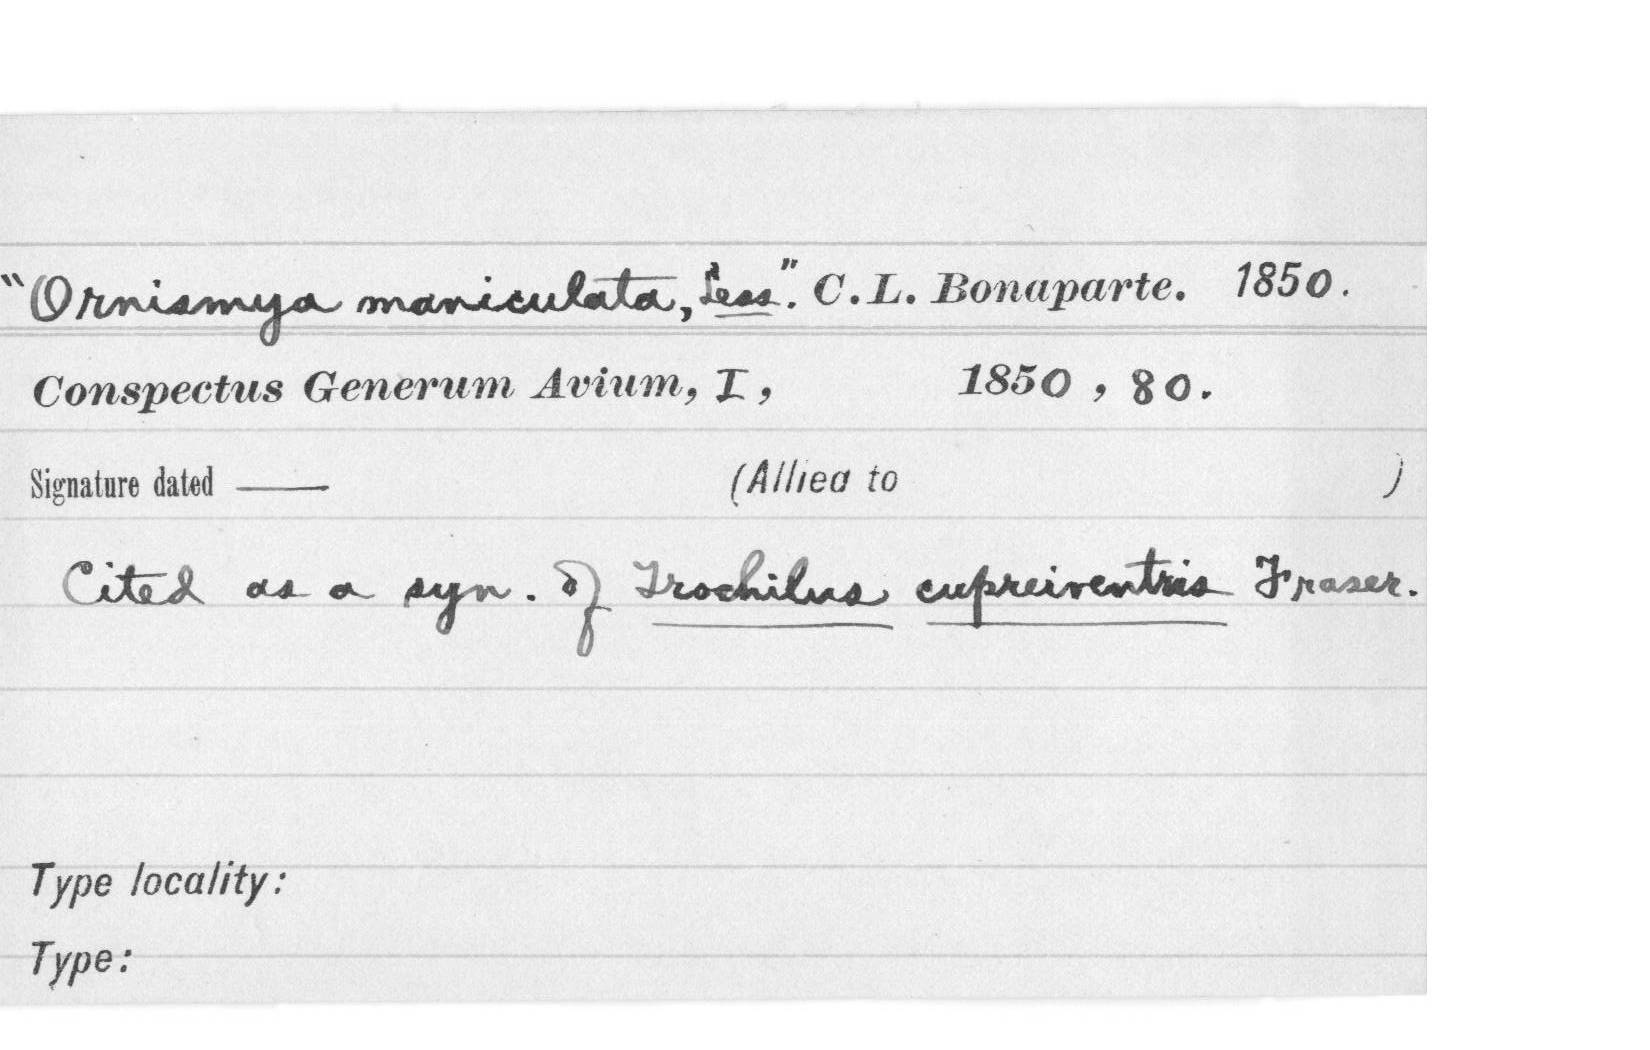 "Ornismya maniculata, Less." C.L. Bonaparte. 1850.
Conspectus Generum Avium, I, 1850, 80.
Signature dated —— (Allied to )
Cited as a syn. of Trochilus cupreiventris Fraser.
Type locality:
Type: